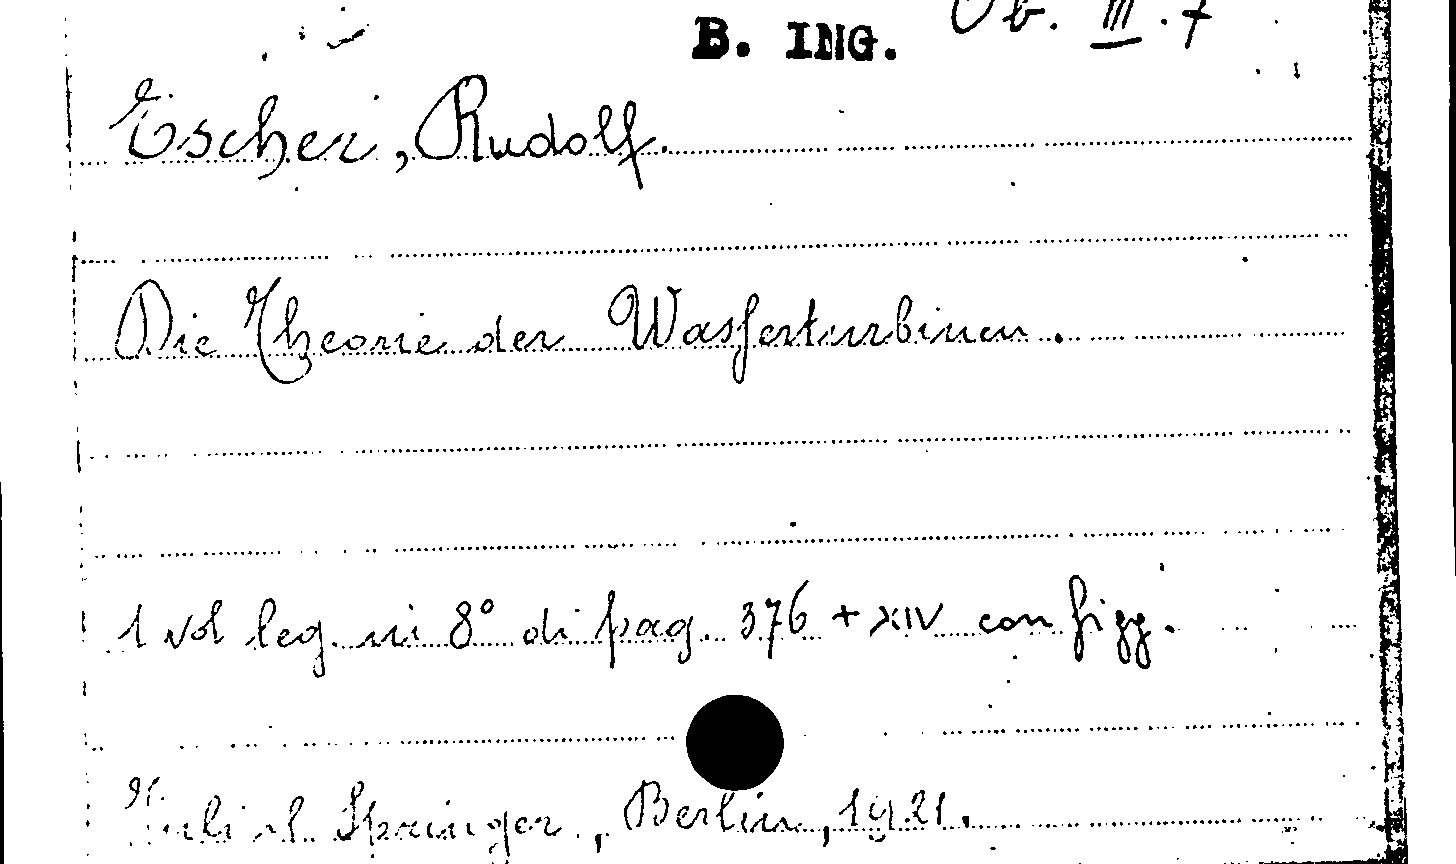 B. ING. Ob. III. 7
Escher, Rudolf.
Die Theorie der Wasserturbinen.
1 vol leg. in 8° di pag. 376 + XIV con figg.
Springer, Berlin, 1921.